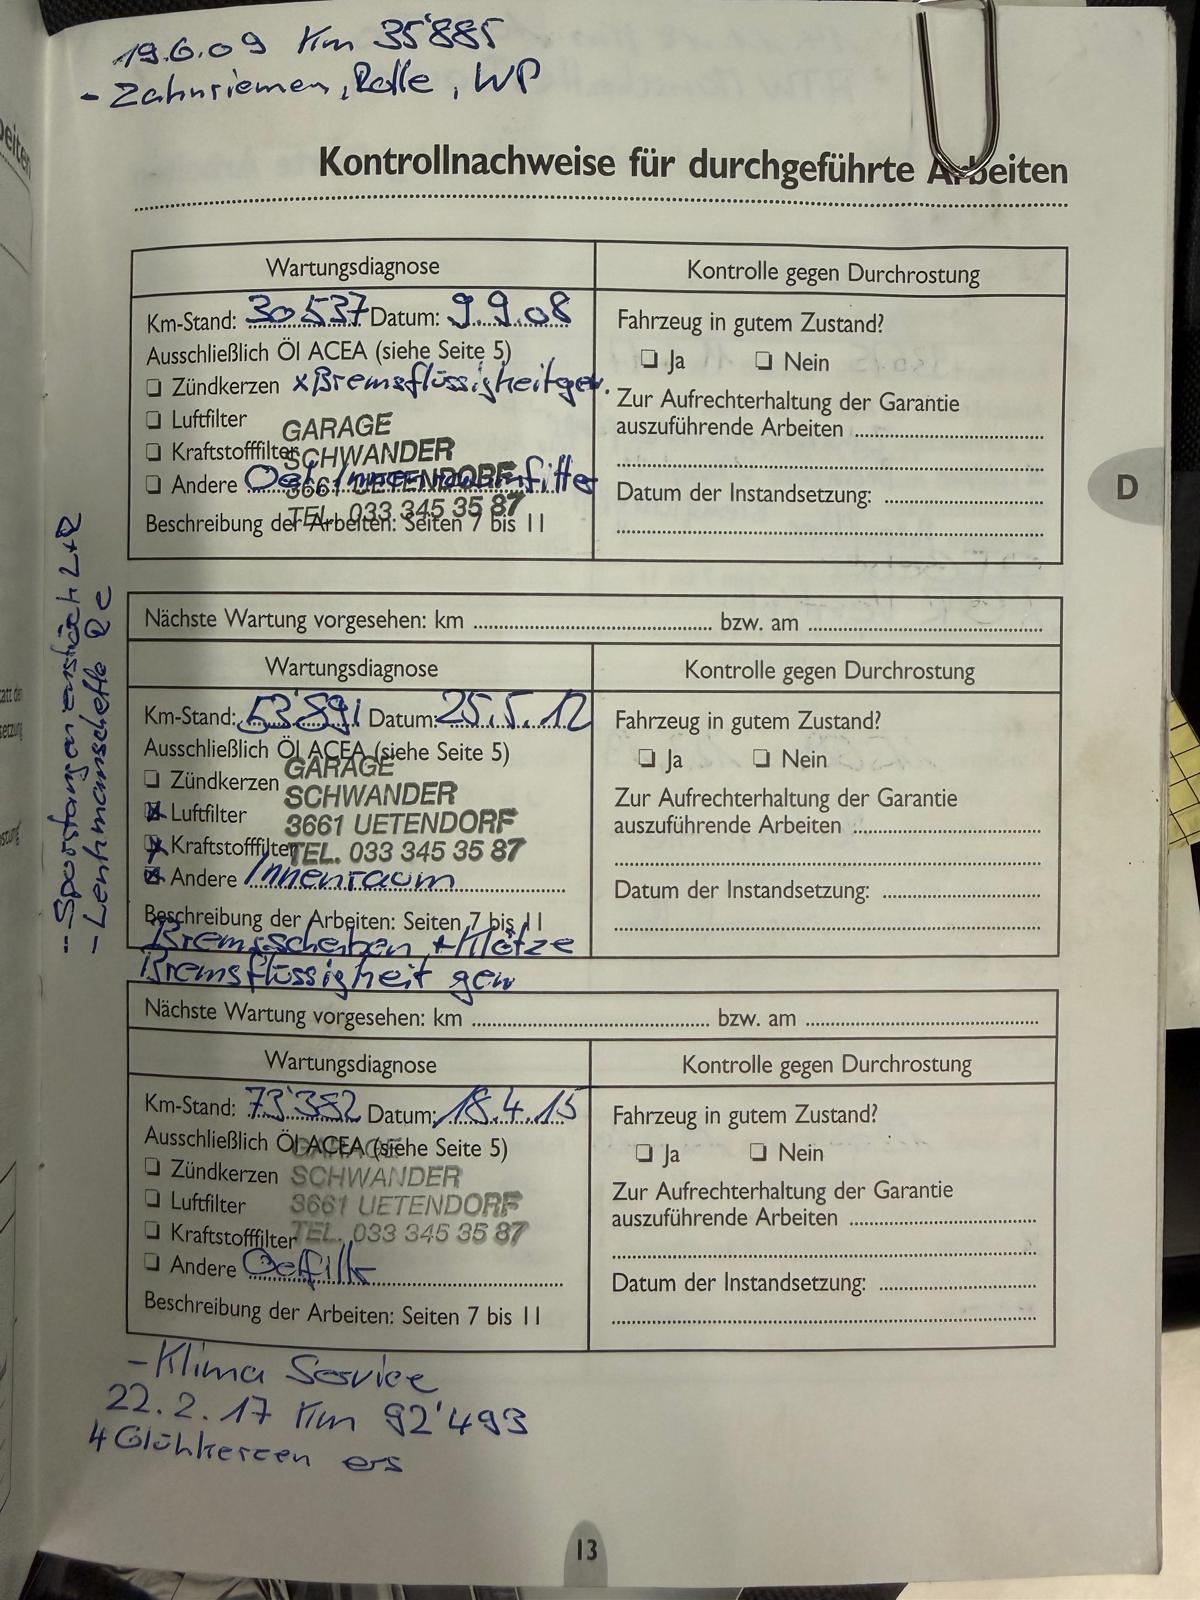 19.6.09 Km 35'885
- Zahnriemen, Rolle, WP
Kontrollnachweise für durchgeführte Arbeiten
Wartungsdiagnose
Km-Stand: 30537 Datum: 9.9.08
Ausschließlich Öl ACEA (siehe Seite 5)
❏ Zündkerzen x Bremsflüssigheit gew.
❏ Luftfilter
❏ Kraftstofffilter
❏ Andere Oel, Innenraumfilter
GARAGE
SCHWANDER
3661 UETENDORF
TEL. 033 345 35 87
Beschreibung der Arbeiten: Seiten 7 bis 11
Kontrolle gegen Durchrostung
Fahrzeug in gutem Zustand?
❏ Ja ❏ Nein
Zur Aufrechterhaltung der Garantie
auszuführende Arbeiten
Datum der Instandsetzung:
D
- Spurstangen L+R
- Lenkmanschette Re
Nächste Wartung vorgesehen: km bzw. am
Wartungsdiagnose
Km-Stand: 53'891 Datum: 25.5.12
Ausschließlich Öl ACEA (siehe Seite 5)
❏ Zündkerzen
☒ Luftfilter
☒ Kraftstofffilter
☒ Andere Innenraum
GARAGE
SCHWANDER
3661 UETENDORF
TEL. 033 345 35 87
Beschreibung der Arbeiten: Seiten 7 bis 11
Bremsscheiben + Klötze
Bremsflüssigheit gew
Kontrolle gegen Durchrostung
Fahrzeug in gutem Zustand?
❏ Ja ❏ Nein
Zur Aufrechterhaltung der Garantie
auszuführende Arbeiten
Datum der Instandsetzung:
Nächste Wartung vorgesehen: km bzw. am
Wartungsdiagnose
Km-Stand: 73'382 Datum: 18.4.15
Ausschließlich Öl ACEA (siehe Seite 5)
❏ Zündkerzen
❏ Luftfilter
❏ Kraftstofffilter
❏ Andere Oelfilter
GARAGE
SCHWANDER
3661 UETENDORF
TEL. 033 345 35 87
Beschreibung der Arbeiten: Seiten 7 bis 11
Kontrolle gegen Durchrostung
Fahrzeug in gutem Zustand?
❏ Ja ❏ Nein
Zur Aufrechterhaltung der Garantie
auszuführende Arbeiten
Datum der Instandsetzung:
- Klima Service
22.2.17 Km 92'493
4 Glühkerzen ers
13